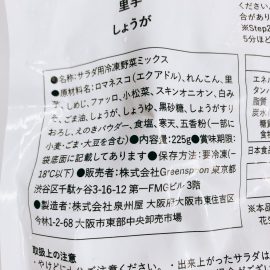 里芋
しょうが
●名称:サラダ用冷凍野菜ミックス
●原材料名:ロマネスコ(エクアドル)、れんこん、里
芋、しめじ、ファッロ、小松菜、スキンオニオン、白み
そ、ごま油、しょうが、しょうゆ、黒砂糖、しょうがすり
おろし、えのきパウダー、食塩、寒天、五香粉(一部に
小麦・ごま・大豆を含む) ●内容量:225g●賞味期限:
袋底面に記載してあります●保存方法:要冷凍(-
18℃以下) ●販売者:株式会社Greenspoon 東京都
渋谷区千駄ヶ谷3-16-12 第一FMGビル 3階
●製造者:株式会社泉州屋 大阪府大阪市東住吉区
今林1-2-68 大阪市東部中央卸売市場
取扱上の注意
ください。
合があり
※Step2
5分ほど
日本食品
※本品
花